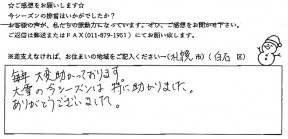 ☆ご感想をお願いします☆
今シーズンの排雪はいかがでしたか？
お客様の声が、私たちの原動力になっています。ぜひ、ご感想をお聞かせ下さい。
ご返信は郵送またはFAX(011-879-1951)にてお願い致します。
※差支えなければ、お住まいの地域をご記入ください(札幌 市)(白石 区)
毎年 大変助かっております。
大雪の今シーズンは 特に助かりました。
ありがとうございました。